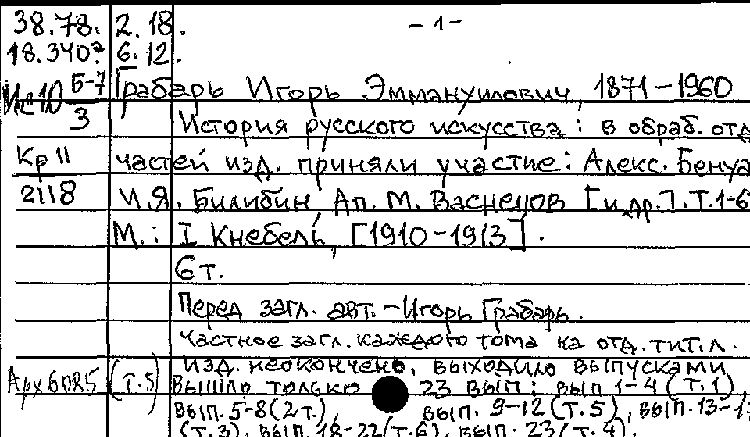 38.78. 2.18. -1-
18.340? 6.12.
Ис10 Б-7/3 Грабарь Игорь Эммануилович, 1871-1960
История русского искусства: в обраб. отд.
Кр 11 частей изд. приняли участие: Алекс. Бенуа
2118 И.Я. Билибин, Ап. М. Васнецов [и др.]. Т.1-6
М.: I Кнебель, [1910-1913].
6 т.
Перед загл. авт. - Игорь Грабарь.
Частное загл. каждого тома на отд. тит. л.
Изд. неокончено, выходило выпусками
Арх 6025 (Т.5) Вышло только 23 вып: вып 1-4 (Т.1),
вып. 5-8 (2 т.), вып. 9-12 (Т.5), вып. 13-17
(Т.3), вып. 18-22 (Т.6), вып. 23 (Т.4).